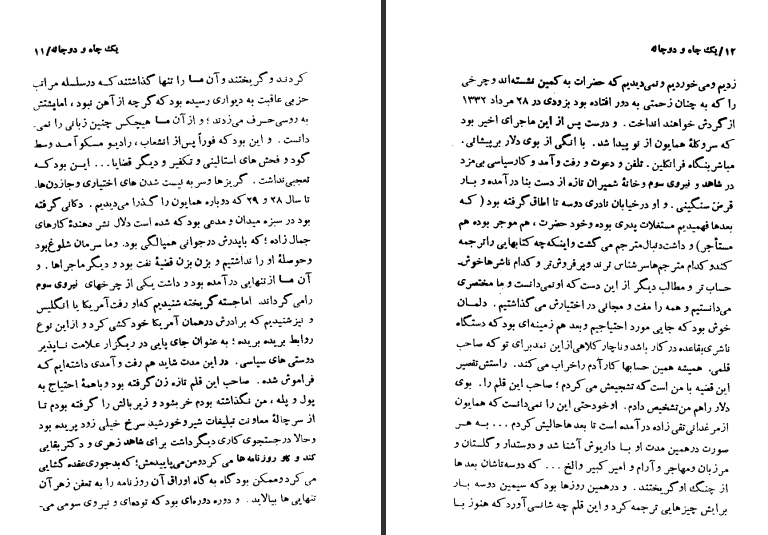 یک چاه و دوچاله/۱۱
کردند و گریختند و آن مــا را تنها گذاشتند کــه درسلسله مراتب
حزبی عاقبت به دیواری رسیده بودکه گرچه از آهن نبود ، اما پشتش
به روسی حرف می‌زدند ؛ و از آن مــا هیچکس چنین زبانی را نمی‌-
دانست . و این بود که فوراً پس از انشعاب ، رادیــو مسکو آمــد وسط
گود و فحش های استالینی و تکفیر و دیگر قضایا... ایــن بود کــه
تعجبی نداشت . گریزها و سر به نیست شدن های اختیاری و جازدن‌ها.
تا سال ۲۸ و ۲۹ که دوباره همایون را گذرا می‌دیدیم . دکانی گرفته
بود در سبزه میدان و مدعی بود که شده است دلال نشر دهندۀ کارهای
جمال زاده ؛ که باپدرش در جوانی همپالگی بود. وما سرمان شلوغ بود
وحوصلۀ او را نداشتیم و بزن بزن قضیۀ نفت بود و دیگر ماجراها . و
آن مــا از تنهایی درآمده بود و داشت یکی از چرخهای نیروی سوم
را می گرداند. اما جسته گریخته شنیدیم که او رفت آمریکا یا انگلیس
و نیز شنیدیم که برادرش درهمان آمریکا خودکشی کرد و ازاین نوع
روابط بریده بریده ؛ به عنوان جای پایی در پیگزار علامت ناپذیر
دوستی های سیاسی . در این مدت شاید هم رفت و آمدی داشته‌ایم که
فراموش شده . صاحب این قلم تازه زن گرفته بود و باهمۀ احتیاج به
پول و پله ، من نگذاشته بودم خر بشود و زیر بالش را گرفته بودم تــا
از سر چالۀ معاونت تبلیغات شیر وخورشید سرخ خیلی زود پریده بود
وحالا درجستجوی کاری دیگر داشت برای شاهد زهری و دکتر بقایی
گند و گه روزنامه‌ها می کرد و من می‌پاییدمش؛ که بدجوری عقده گشایی
می کرد و ممکن بود گاه به گاه اوراق آن روزنامه را به تعفن زهرآن
تنهایی ها بیالاید . و دوره دوره‌ای بود که توده‌ای و نیروی سومی می‌-
۱۲/یک چاه و دوچاله
زدیم ومی‌خوردیم و نمی‌دیدیم که حضرات به کمین نشسته‌اند و چرخی
را که به چنان زحمتی به دور افتاده بود بزودی در ۲۸ مرداد ۱۳۳۲
ازگردش خواهند انداخت . و درست پس از این ماجرای اخیر بود
که سروکلۀ همایون از نو پیدا شد. با انگی از بوی دلار برپیشانی .
مباشر بنگاه فرانکلین . تلفن و دعوت و رفت وآمد و کارسیاسی بی‌مزد
در شاهد و نیروی سوم وخانۀ شمیران تازه از دست بنا درآمده و بــار
قرض سنگینی . و او در خیابان نادری دوسه تا اطاق گرفته بود ( کــه
بعدها فهمیدیم مستغلات پدری بوده و خود حضرت ، هم موجر بوده هم
مستأجر) و داشت دنبال مترجم می گشت واینکه چه کتابهایی را ترجمه
کند و کدام مترجم‌ها سرشناس ترند و پرفروش‌تر و کدام ناشرها خوش
حساب تر و مطالب دیگر از این دست که او نمی‌دانست و ما مختصری
می‌دانستیم و همه را مفت و مجانی در اختیارش می گذاشتیم . دلمان
خوش بود که جایی مورد احتیاجیم و بعد هم زمینه‌ای بود که دستگاه
ناشری بقاعده در کار باشد و ناچار کلاهی ازاین نمد برای تو که صاحب
قلمی. همیشه همین حسابها کار آدم را خراب می کند. راستش تقصیر
این قضیه با من است که تشجیعش می کردم ؛ صاحب این قلم را . بوی
دلار راهم من تشخیص دادم. او خودحتی این را نمی‌دانست که همایون
از مرغدانی تقی زاده درآمده است تا بعدها حالیش کردم ... به هــر
صورت درهمین مدت او بــا داریوش آشنا شد و دوستدار و گلستان و
مرزبان و مهاجر و آرام و امیر کبیر و الخ ... که دوسه تاشان بعد ها
از چنگ او گریختند . و درهمین روزها بود که سیمین دوسه بــار
برایش چیزهایی ترجمه کرد و این قلم چه شانسی آورد که هنوز بــا